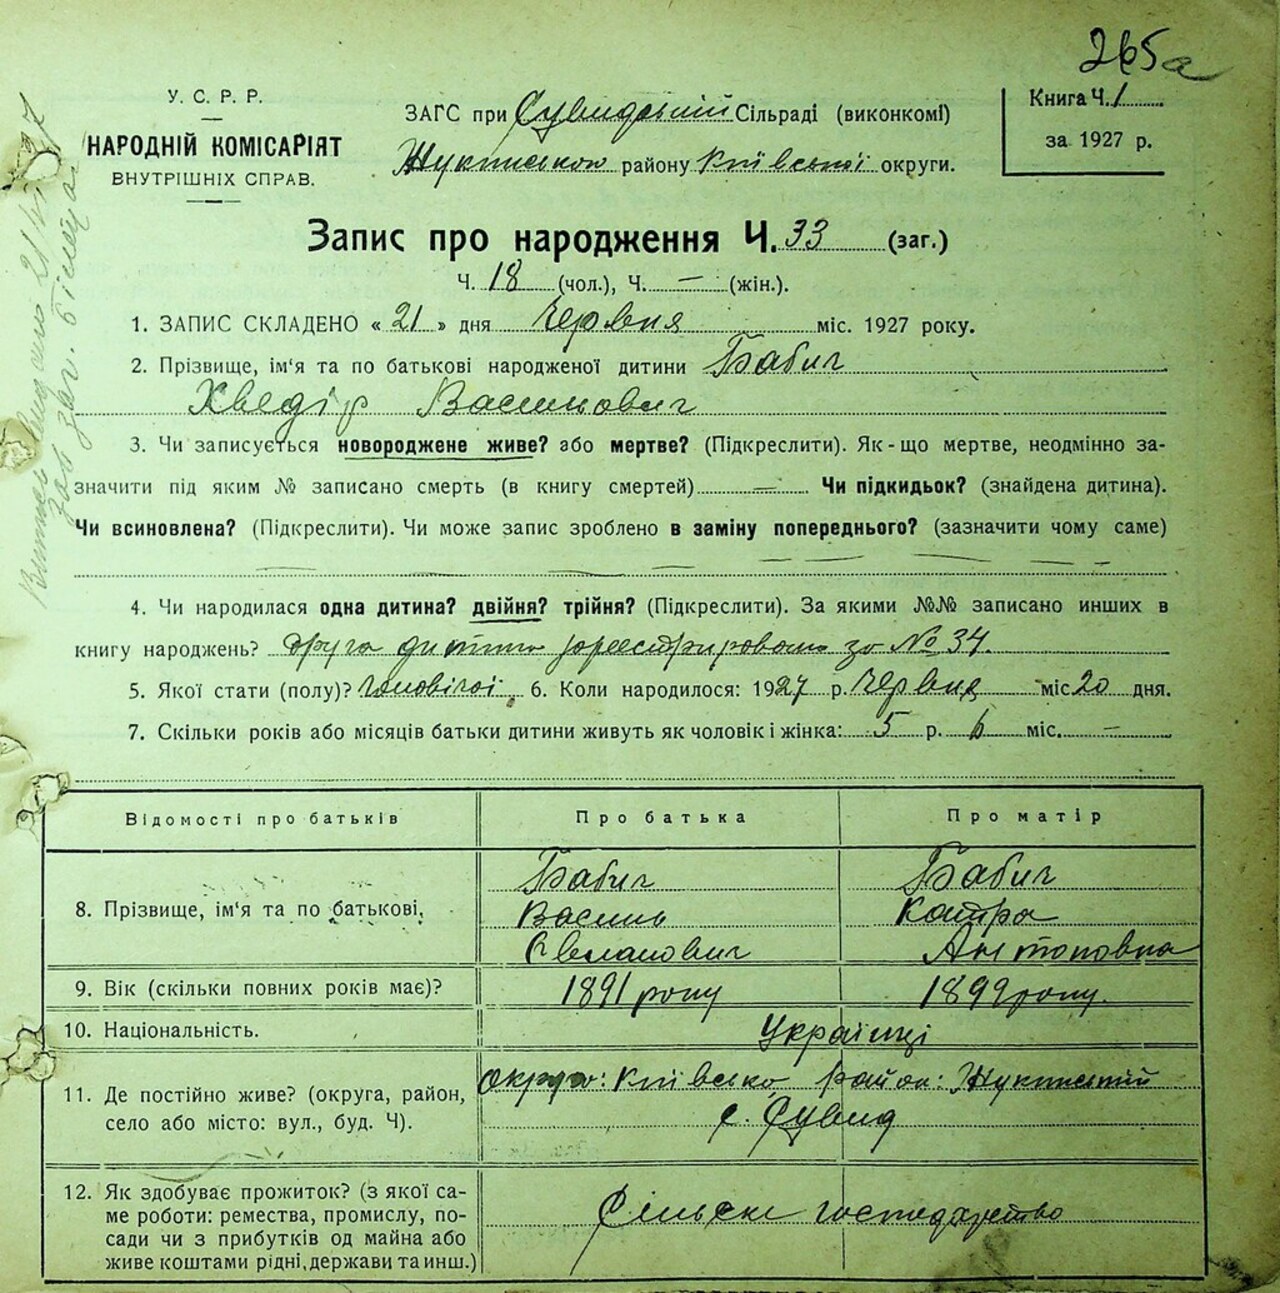 265а
У. С. Р. Р.
НАРОДНІЙ КОМІСАРІЯТ
ВНУТРІШНІХ СПРАВ.
ЗАГС при Сувидській Сільраді (виконкомі)
Жукинською району Київської округи.
Книга Ч. 1
за 1927 р.
Запис про народження Ч. 33 (заг.)
Ч. 18 (чол.), Ч. — (жін.).
1. ЗАПИС СКЛАДЕНО « 21 » дня Червня міс. 1927 року.
2. Прізвище, ім'я та по батькові народженої дитини Бабич
Хведір Васильович
3. Чи записується новороджене живе? або мертве? (Підкреслити). Як-що мертве, неодмінно за-
значити під яким № записано смерть (в книгу смертей) — Чи підкидьок? (знайдена дитина).
Чи всиновлена? (Підкреслити). Чи може запис зроблено в заміну попереднього? (зазначити чому саме)
4. Чи народилася одна дитина? двійня? трійня? (Підкреслити). За якими №№ записано инших в
книгу народжень? друга дитина зареєстрирована за № 34.
5. Якої стати (полу)? чоловічої 6. Коли народилося: 1927 р. Червня міс 20 дня.
7. Скільки років або місяців батьки дитини живуть як чоловік і жінка: 5 р. 6 міс. —
Відомості про батьків Про батька Про матір
8. Прізвище, ім'я та по батькові,
Бабич Бабич
Василь
Антоновна
9. Вік (скільки повних років має)? 1891 року 1899 року.
10. Національність. Українці
11. Де постійно живе? (округа, район,
село або місто: вул., буд. Ч).
округа: Київська район: Жукинський
с. Сувид
12. Як здобуває прожиток? (з якої са-
ме роботи: ремества, промислу, по-
сади чи з прибутків од майна або
живе коштами рідні, держави та инш.)
Сільске господарство